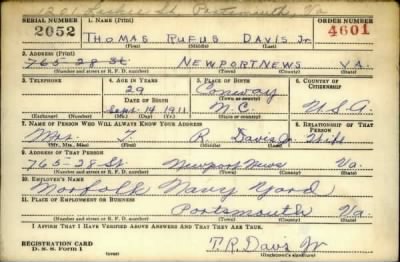 Portsmouth, Va
SERIAL NUMBER 1. NAME (Print) ORDER NUMBER
2052 THOMAS RUFUS DAVIS Jr 4601
(First) (Middle) (Last)
2. ADDRESS (Print)
765-28 St NEWPORT NEWS VA.
(Number and street or R. F. D. number) (Town) (County) (State)
3. TELEPHONE 4. AGE IN YEARS 5. PLACE OF BIRTH 6. COUNTRY OF CITIZENSHIP
29 Conway
DATE OF BIRTH (Town or county)
Sept. 14 1911 N.C. U.S.A.
(Exchange) (Number) (Mo.) (Day) (Yr.) (State or country)
7. NAME OF PERSON WHO WILL ALWAYS KNOW YOUR ADDRESS 8. RELATIONSHIP OF THAT PERSON
Mrs. T R Davis Jr. Wife
(Mr., Mrs., Miss) (First) (Middle) (Last)
9. ADDRESS OF THAT PERSON
765-28-St. Newport News Va.
(Number and street or R. F. D. number) (Town) (County) (State)
10. EMPLOYER'S NAME
Norfolk Navy Yard
11. PLACE OF EMPLOYMENT OR BUSINESS
Portsmouth Va.
(Number and street or R. F. D. number) (Town) (County) (State)
I AFFIRM THAT I HAVE VERIFIED ABOVE ANSWERS AND THAT THEY ARE TRUE.
REGISTRATION CARD
D. S. S. Form 1 T. R. Davis Jr
(Registrant's signature)